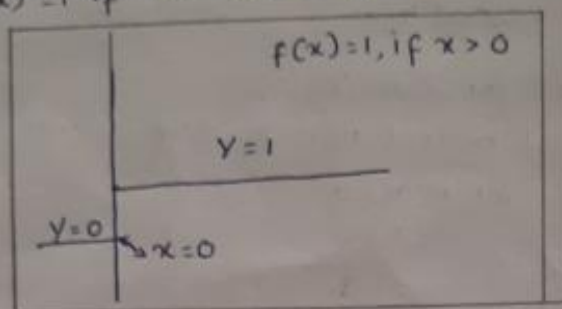 f(x)=1, if x > 0
Y = 1
Y=0
x=0